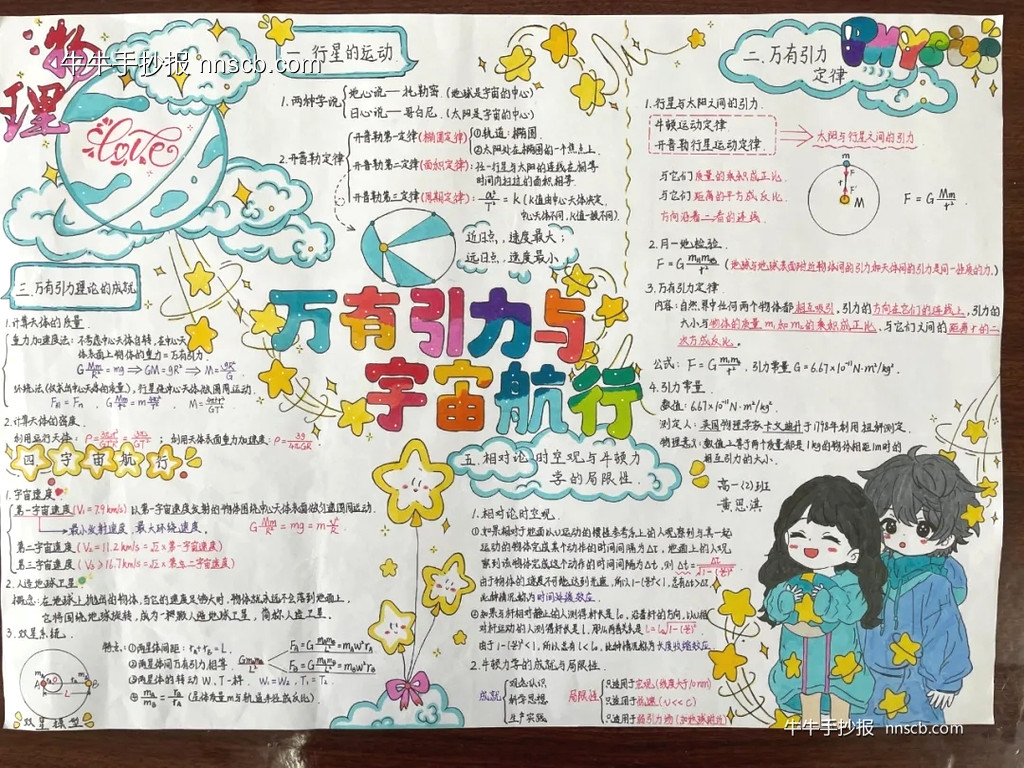 牛牛手抄报 nnscb.com
物理
Physics
love
一.行星的运动
1.两种学说
地心说——托勒密.(地球是宇宙的中心)
日心说——哥白尼.(太阳是宇宙的中心)
2.开普勒定律
开普勒第一定律(椭圆定律)
①轨道:椭圆.
②太阳处在椭圆的一个焦点上.
开普勒第二定律(面积定律):任一行星与太阳的连线在相等
时间内扫过的面积相等.
开普勒第三定律(周期定律):a³/T²=k(k值由中心天体决定.
中心天体不同,k值一般不同).
近日点,速度最大;
远日点,速度最小
二.万有引力
定律
1.行星与太阳之间的引力.
牛顿运动定律
开普勒行星运动定律
太阳与行星之间的引力.
与它们质量的乘积成正比.
与它们距离的平方成反比.
方向沿着二者的连线.
m
F
r
F'
M
F=G Mm/r².
2.月-地检验.
(地球与地球表面附近物体间的引力和天体间的引力是同一性质的力.)
3.万有引力定律
内容:自然界中任何两个物体都相互吸引,引力的方向在它们的连线上,引力的
大小与物体的质量m₁和m₂的乘积成正比、与它们之间的距离r的二
次方成反比。
公式:F=G m₁m₂/r².引力常量G=6.67×10⁻¹¹N·m²/kg².
4.引力常量.
数值:6.67×10⁻¹¹N·m²/kg².
测定人:英国物理学家卡文迪什于1798年利用扭秤测定.
物理意义:数值上等于两个质量都是1kg的物体相距1m时的
相互引力的大小.
高一(2)班
黄思淇
三.万有引力理论的成就
1.计算天体的质量.
重力加速度法:不考虑中心天体自转,在中心天
体表面上物体的重力=万有引力.
G Mm/R²=mg⇒GM=gR²⇒M=gR²/G.
行星绕中心天体做匀速圆周运动.
2.计算天体的密度.
利用运行天体:
;利用天体表面重力加速度:ρ=3g/4πGR
万有引力与
宇宙航行
四宇宙航行
1.宇宙速度
第一宇宙速度(V₁=7.9km/s)以第一宇宙速度发射的物体围绕中心天体表面做匀速圆周运动.
最小发射速度 最大环绕速度.
G Mm/R²=mg=m v²/R.
第二宇宙速度(V₂=11.2km/s=√2×第一宇宙速度)
第三宇宙速度
2.人造地球卫星
概念:在地球上抛出的物体,当它的速度足够大时,物体就永远不会落到地面上,
它将围绕地球旋转,成为一颗人造地球卫星,简称人造卫星.
3.双星系统.
特点:①两星体间距:rA+rB=L.
②两星体间万有引力相等.
③两星体的转动W、T一样.W₁=W₂,T₁=T₂
④mA/mB=rB/rA(星体质量m与轨道半径成反比)
A
B
L
双星模型
五.相对论时空观与牛顿力
学的局限性.
1.相对论时空观.
①如果相对于地面以v运动的惯性参考系上的人观察到与其一起
运动的物体完成某个动作的时间间隔为Δτ,地面上的人观
察到该物体完成这个动作的时间间隔为Δt,则Δt=Δτ/√1-(v/c)²
由于物体的速度不可能达到光速,所以1-(v/c)²<1,总有Δt>Δτ,
此种情况称为时间延缓效应.
②如果与杆相对静止的人测得杆长是l₀,沿着杆的方向,以v相
对杆运动的人测得杆长是l,那么两者关系是l=l₀√1-(v/c)²
由于1-(v/c)²<1,所以总有l<l₀,此种情况称为长度收缩效应.
2.牛顿力学的成就与局限性.
成就
观念认识.
科学思想.
生产实践.
局限性
只适用于宏观
只适用于低速(v<<c)
只适用于弱引力场
牛牛手抄报 nnscb.com